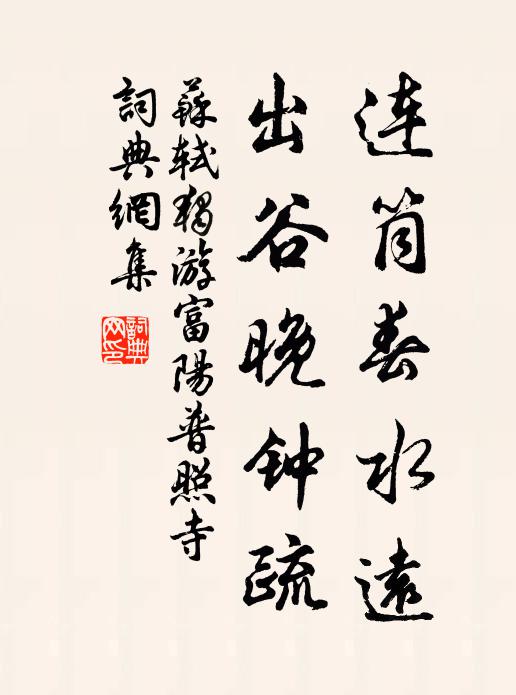 连筒春水远
出谷晚钟疏
蘇軾獨游富陽普照寺
詞典網集
詞典网印